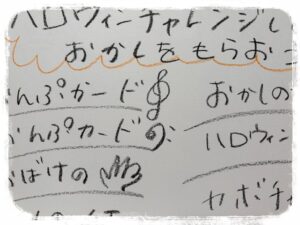 ハロウィンチャレンジし
おかしをもらおこ
んぷカード
おかしの
んぷカード
ハロウィン
おばけの
カボチ